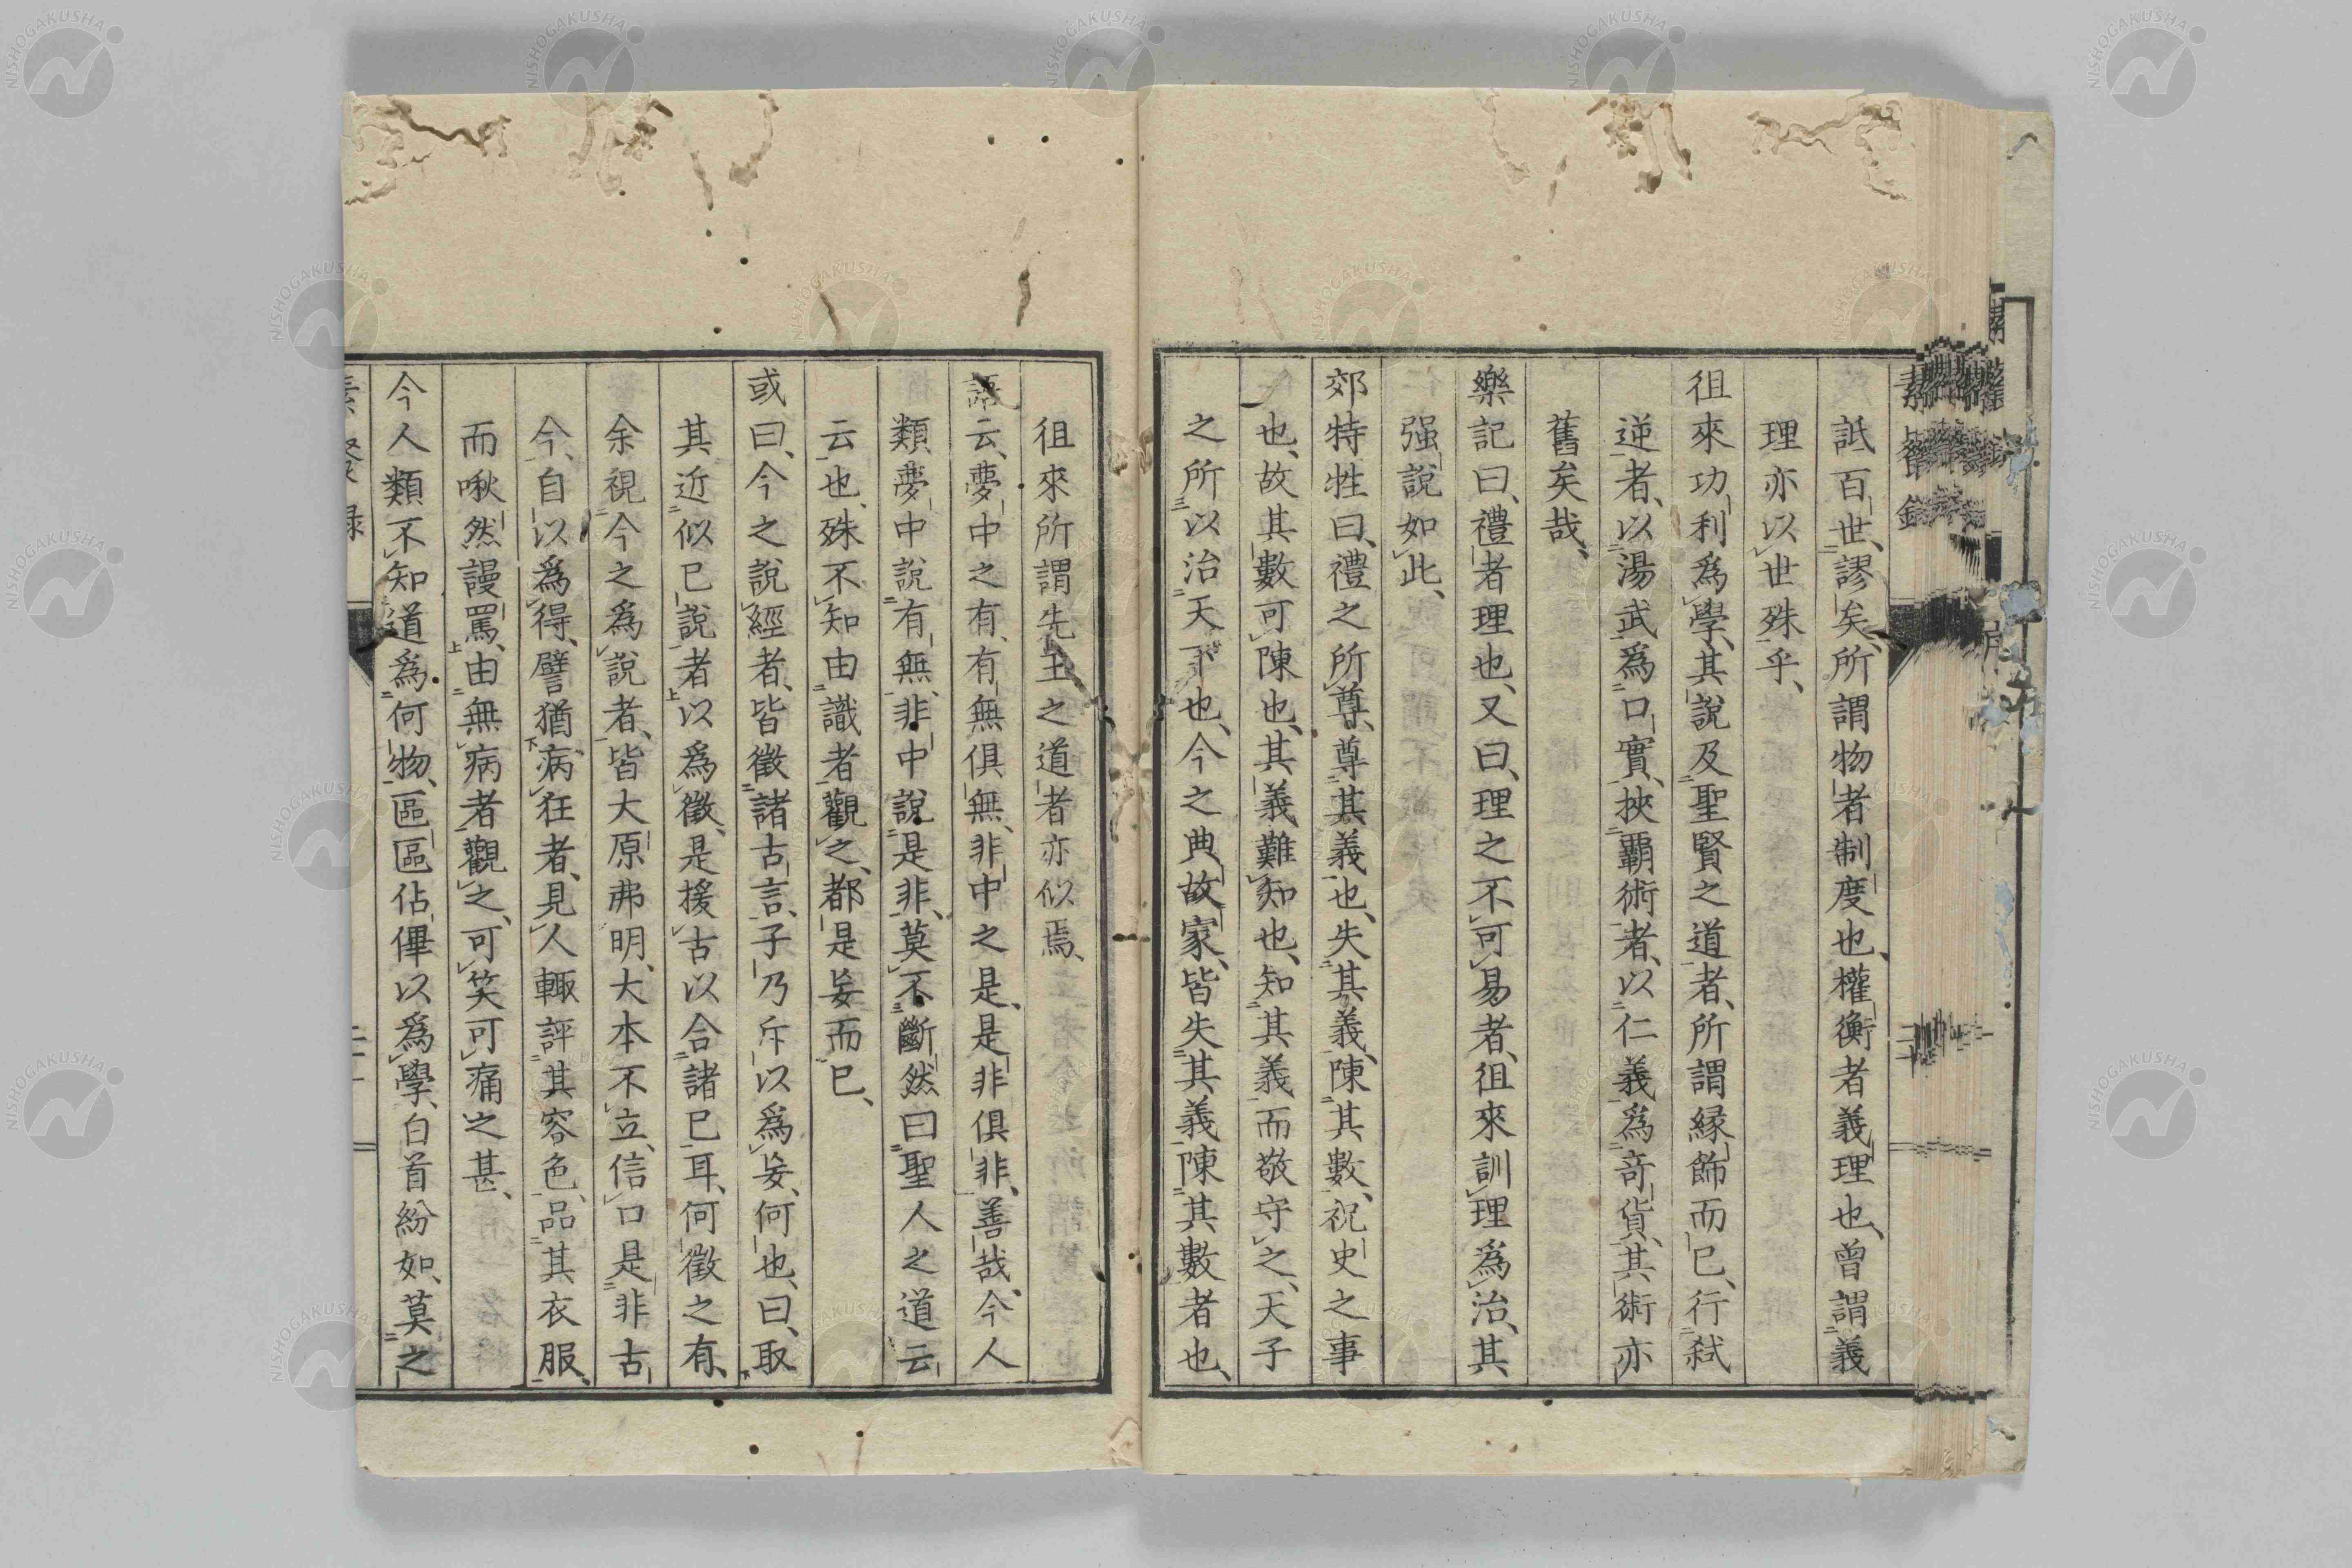 詆百世、謬矣、所謂物者制度也、權衡者義理也、曾謂義
理亦以世殊乎、
徂來功利爲學、其說及聖賢之道者、所謂緣飾而已、行弑
逆者、以湯武爲口實、挾覇術者、以仁義爲奇貨、其術亦
舊矣哉、
樂記曰、禮者理也、又曰、理之不可易者、徂來訓理爲治、其
强說如此、
郊特牲曰、禮之所尊、尊其義也、失其義、陳其數、祝史之事
也、故其數可陳也、其義難知也、知其義而敬守之、天子
之所以治天下也、今之典故家、皆失其義陳其數者也、
徂來所謂先王之道者亦似焉、
諺云、夢中之有、有無俱無、非中之是、是非俱非、善哉、今人
類夢中說有無、非中說是非、莫不斷然曰聖人之道云
云也、殊不知由識者觀之、都是妄而已、
或曰、今之說經者、皆徵諸古言、子乃斥以爲妄、何也、曰、取
其近似已說者以爲徵、是援古以合諸已耳、何徵之有、
余視今之爲說者、皆大原弗明、大本不立、信口是非古
今、自以爲得、譬猶病狂者、見人輒評其容色、品其衣服、
而啾然謾罵、由無病者觀之、可笑可痛之甚、
今人類不知道爲何物、區區佔僤以爲學、白首紛如、莫之
NISHOGAKUSHA